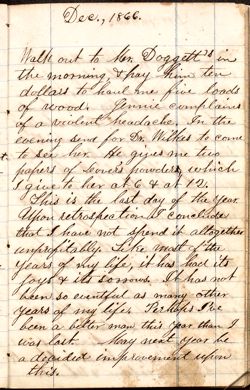 Dec., 1866.
Walk out to Mr. Doggett's in
the morning, & pay him ten
dollars to haul me five loads
of wood. Jennie complains
of a violent headache. In the
evening send for Dr. Wilkes to come
to see her. He gives me two
papers of Dover's powders, which
I give to her at 6 & at 12.
This is the last day of the year.
Upon retrospection I conclude
that I have not spend it altogether
unprofitably. Like most of the
years of my life, it has had its
joys & its sorrows. It has not
been so eventful as many other
years of my life. Perhaps I've
been a better man this year than I
was last. May next year be
a decided improvement upon
this.